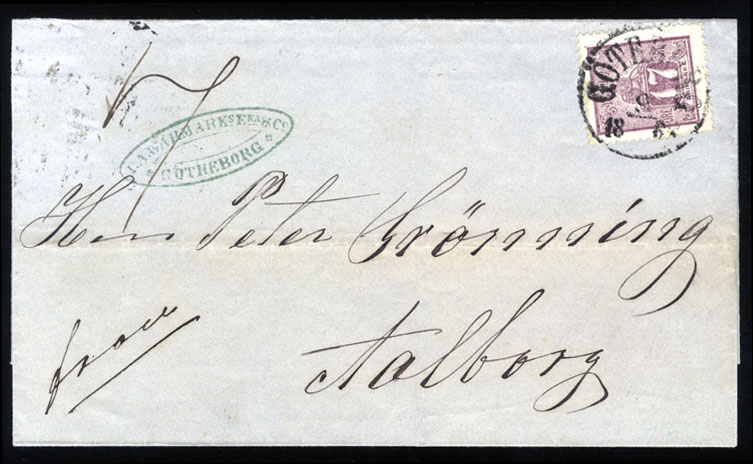 17
GÖTEB
18
I.A.WARMARK SENR & Co
GÖTHEBORG
Herr Peter Grönning
Aalborg
franco